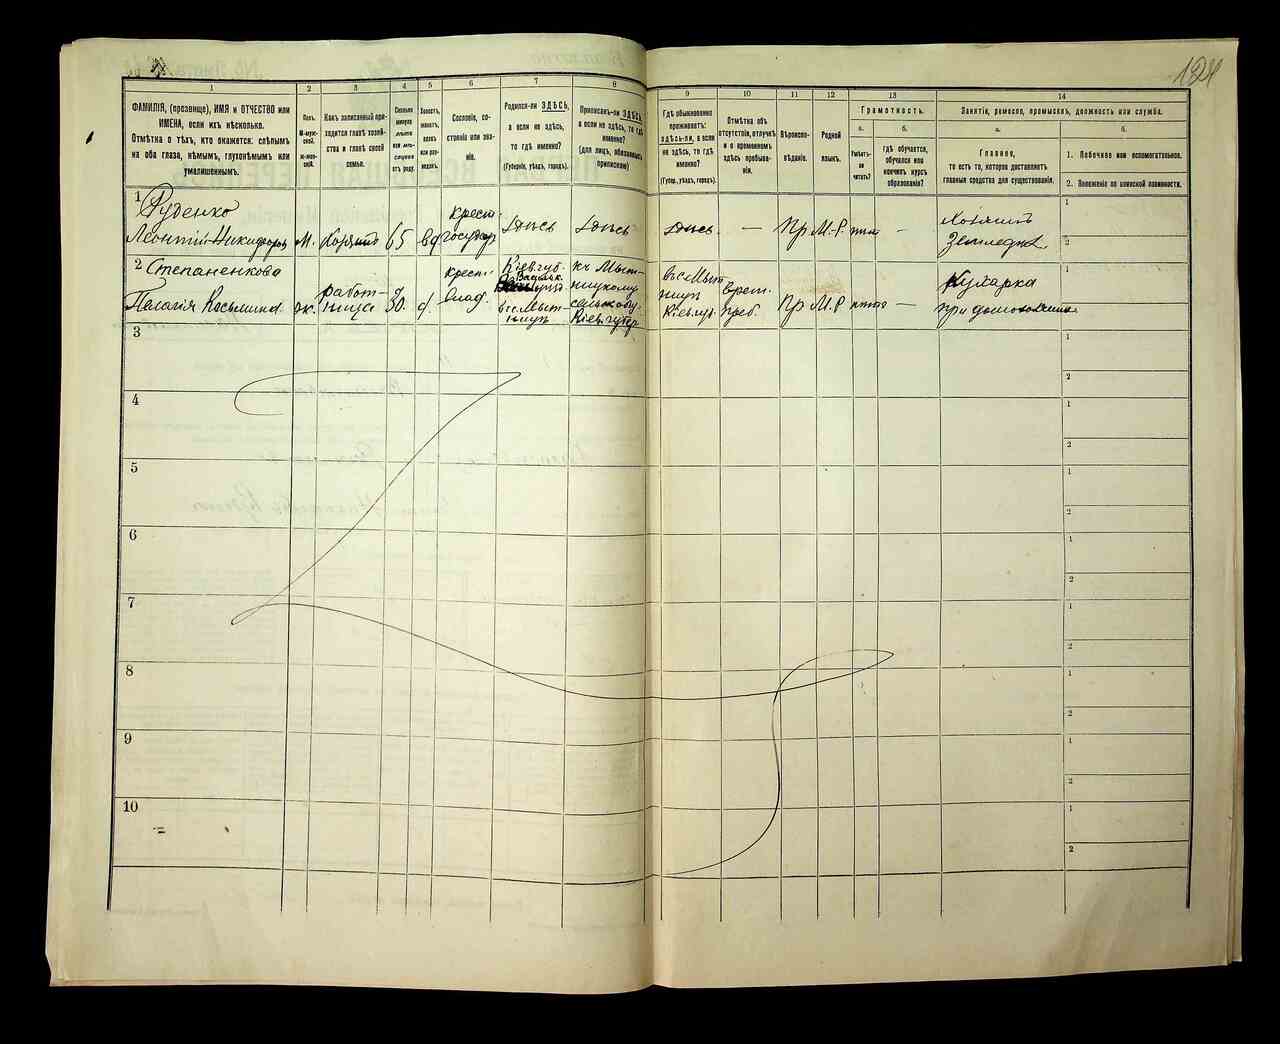 124
1
ФАМИЛІЯ, (прозвище), ИМЯ и ОТЧЕСТВО или
ИМЕНА, если ихъ нѣсколько.
Отмѣтка о тѣхъ, кто окажется: слѣпымъ
на оба глаза, нѣмымъ, глухонѣмымъ или
умалишеннымъ.
2
Полъ.
М-муж-
ской.
Ж-жен-
скій.
3
Какъ записанный при-
ходится главѣ хозяй-
ства и главѣ своей
семьи.
4
Сколько
минуло
лѣтъ
или мѣ-
сяцевъ
отъ роду.
5
Холостъ,
женатъ,
вдовъ
или раз-
веденъ.
6
Сословіе, со-
стояніе или зва-
ніе.
7
Родился-ли ЗДѢСЬ,
а если не здѣсь,
то гдѣ именно?
(Губернія, уѣздъ, городъ).
8
Приписанъ-ли ЗДѢСЬ,
а если не здѣсь, то гдѣ
именно?
(для лицъ, обязанныхъ
припискою)
9
Гдѣ обыкновенно
проживаетъ:
здѣсь-ли, а если
не здѣсь, то гдѣ
именно?
(Губер., уѣздъ, городъ).
10
Отмѣтка объ
отсутствіи, отлучкѣ
и о временномъ
здѣсь пребыва-
ніи.
11
Вѣроиспо-
вѣданіе.
12
Родной
языкъ.
13
Грамотность.
а.
Умѣетъ-
ли
читать?
б.
Гдѣ обучается,
обучался или
кончилъ курсъ
образованія?
14
Занятіе, ремесло, промыселъ, должность или служба.
а.
Главное,
то есть то, которое доставляетъ
главныя средства для существованія.
б.
1. Побочное или вспомогательное.
2. Положеніе по воинской повинности.
1 Руденко
Леонтій Никифоров
М.
Хозяинъ
65
вд
крест.
государ
Здѣсь
Здѣсь
Здѣсь.
—
Пр
М.-Р.
нѣтъ
—
Хозяинъ
Земледѣл.
1
2
2 Степаненкова
Пелагія Косьмина.
ж.
работ-
ница
30.
д.
крест.
Влад.
Кіев. губ.
Васильк.
в с. Мыт-
ницѣ
къ Мыт-
ницкому
сельск. обу.
Кіев. губер
въ с. Мыт
ницѣ
Кіев. губ.
врем.
преб.
Пр
М.-Р
нѣтъ
—
Кухарка
при домохозяинѣ
1
3
1
2
4
1
2
5
1
2
6
1
2
7
1
2
8
1
2
9
1
2
10
1
2